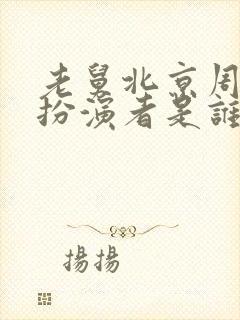 老舅北京周
扮演者是誰
揚揚